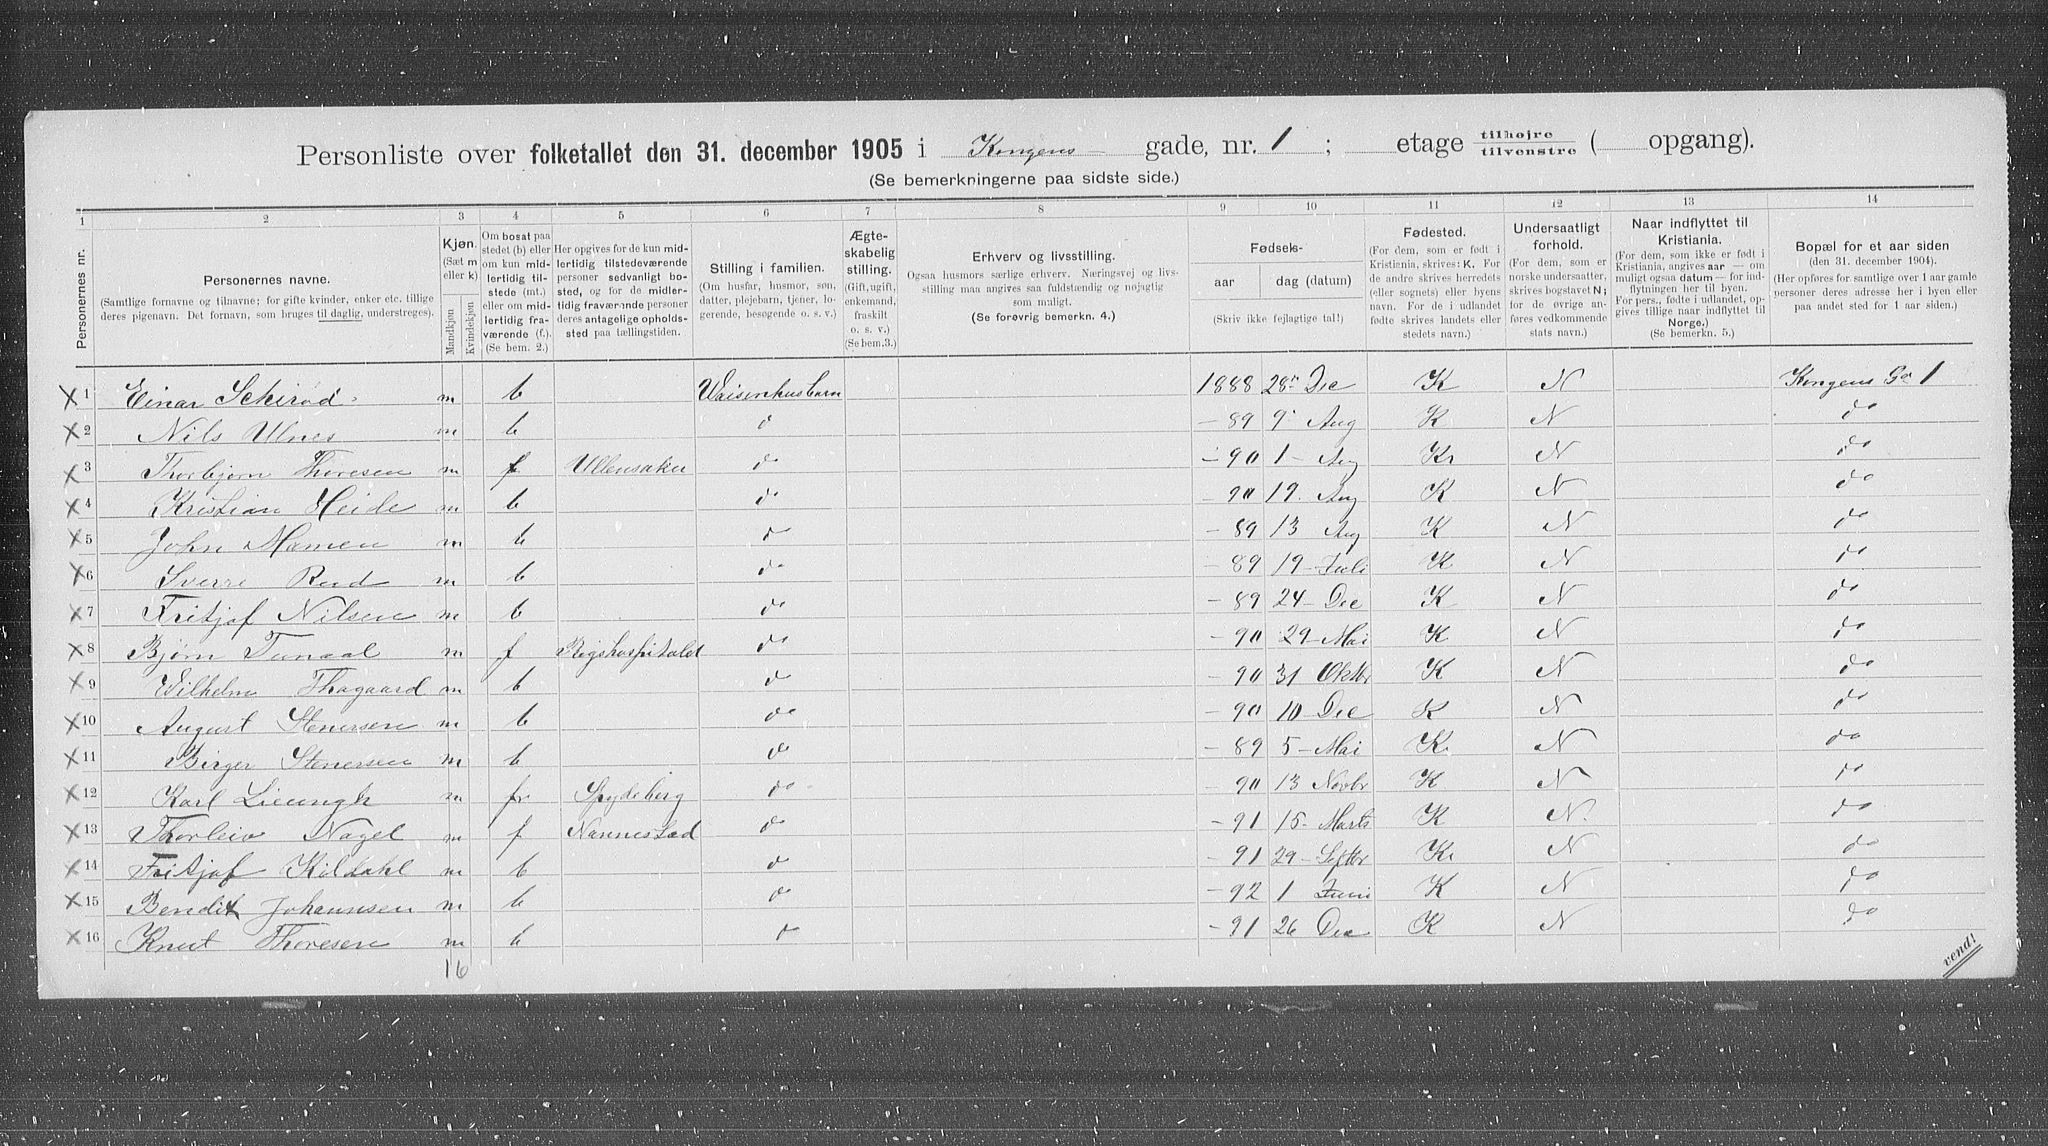 Personliste over folketallet den 31. december 1905 i Kongens gade, nr. 1 ; etage tilhøjre / tilvenstre ( opgang).
(Se bemerkningerne paa sidste side.)
1 2 3 4 5 6 7 8 9 10 11 12 13 14
Personernes nr.
Personernes navne.
(Samtlige fornavne og tilnavne; for gifte kvinder, enker etc. tillige
deres pigenavn. Det fornavn, som bruges til daglig, understreges).
Kjøn.
(Sæt m
eller k)
Mandkjøn
Kvindekjøn
Om bosat paa
stedet (b) eller
om kun mid-
lertidig til-
stede (mt.)
eller om mid-
lertidig fra-
værende (f.).
(Se bem. 2.)
Her opgives for de kun mid-
lertidig tilstedeværende
personer sedvanlig bo-
sted, og for de midler-
tidig fraværende personer
deres antagelige opholds-
sted paa tællingstiden.
Stilling i familien.
(Om husfar, husmor, søn,
datter, plejebarn, tjener, lo-
gerende, besøgende o. s. v.)
Ægte-
skabelig
stilling.
(Gift, ugift,
enkemand,
fraskilt
o. s. v.)
(Se bem.3.)
Erhverv og livsstilling.
Ogsaa husmors særlige erhverv. Næringsvej og livs-
stilling maa angives saa fuldstændig og nøjagtig
som muligt.
(Se forøvrig bemerkn. 4.)
Fødsels-
aar dag (datum)
(Skriv ikke fejlagtige tal!)
Fødested.
(For dem, som er født i
Kristiania, skrives: K. For
de andre skrives herredets
(eller sognets) eller byens
navn. For de i udlandet
fødte skrives landets eller
stedets navn.)
Undersaatligt
forhold.
(For dem, som er
norske undersaatter,
skrives bogstavet N;
for de øvrige an-
føres vedkommende
stats navn.)
Naar indflyttet til
Kristiania.
(For dem, som ikke er født i
Kristiania, angives aar — om
muligt ogsaa datum — for ind-
flytningen her til byen.
For pers., fødte i udlandet, op-
gives tillige naar indflyttet til
Norge.)
(Se bemerkn. 5.)
Bopæl for et aar siden
(den 31. december 1904).
(Her opføres for samtlige over 1 aar gamle
personer deres adresse her i byen eller
paa andet sted for 1 aar siden.)
X 1 Einar Schirød m b Waisenhusbarn 1888 28 Dec K N Kongens Ga 1
X 2 Nils Ulnes m b d – 89 9 Aug K N do
X 3 Thorbjørn Thoresen m f Ullensaker do – 90 1 – Aug Kr N do
X 4 Kristian Heide m b do – 90 19. Aug K N do
X 5 John Mamen m b do – 89 13 Aug K N do
X 6 Sverre Rud m b do – 89 19 – Juli K N do
X 7 Fritjof Nilsen m b do – 89 24 – Dec K N do
X 8 Bjørn Tunaal m f Rigshospitalet do – 90 29 – Mai K N do
X 9 Wilhelm Thagaard m b d – 90 31 Oktbr K N do
X 10 August Stenersen m b do – 90 10 – Dec K N do
X 11 Birger Stenersen m b do – 89 5 – Mai K. N do
X 12 Karl Lieungh m fr Spydeberg do – 90 13 Novbr K N do
X 13 Thorleiv Nagel m f Nannestad d – 91 15 – Marts K N. do
X 14 Fritjof Kildahl m b d – 91 29 – Septbr K. N do
X 15 Bendix Johannsen m b d – 92 1 Juni K N do
X 16 Knut Thoresen m b d – 91 26 Dec K N do
16
vend!